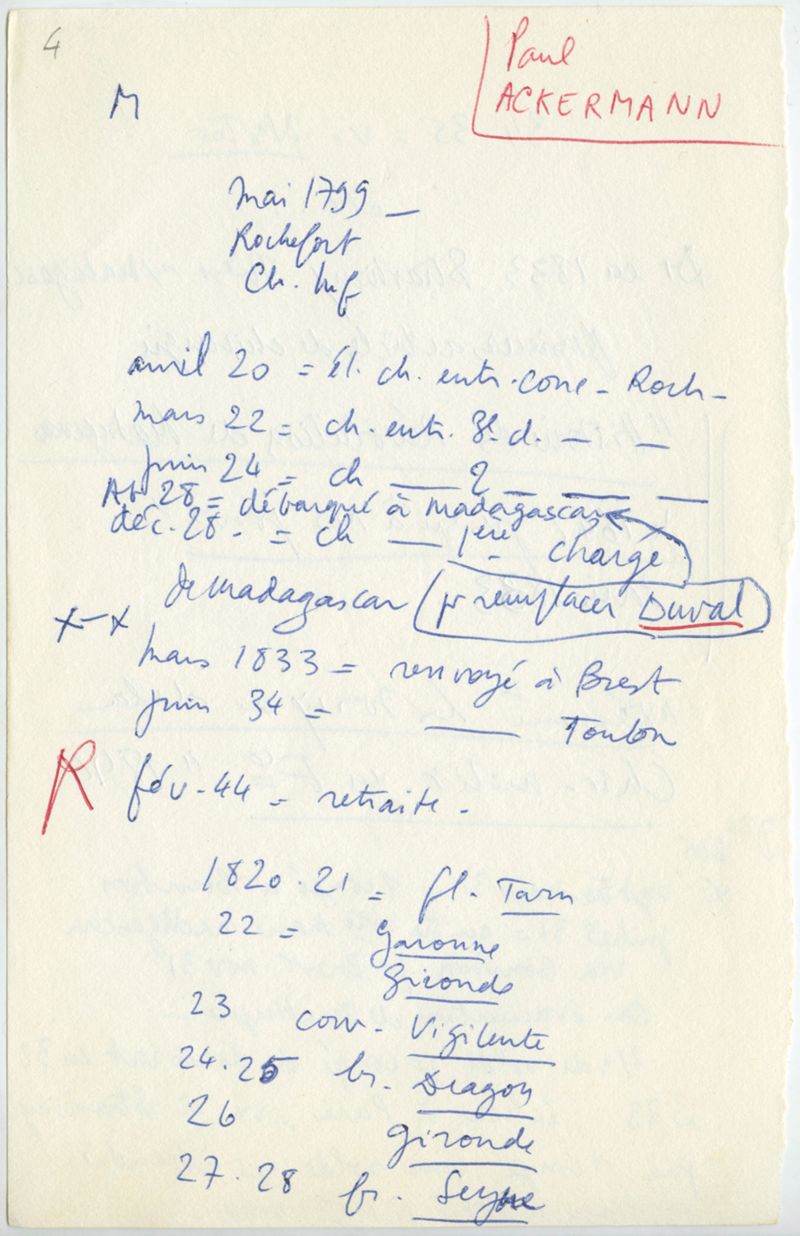 4
Paul
ACKERMANN
M
mai 1799 _
Rochefort
Ch. Inf
avril 20 = él. ch. entr. conc - Roch -
mars 22 = ch. entr. 3e cl. — —
juin 24 = ch — 2 — — —
Ab 28 = débarqué à Madagascar
déc. 28 - = ch — 1ère chargé
de Madagascar (pr remplacer Duval)
x-x
mars 1833 = renvoyé à Brest
juin 34 = — Toulon
R
fév - 44 = retraite -
1820.21 = fl. Tarn
22 = Garonne
Gironde
23 corv - Vigilente
24.25 br. Dragon
26 Gironde
27.28 br.